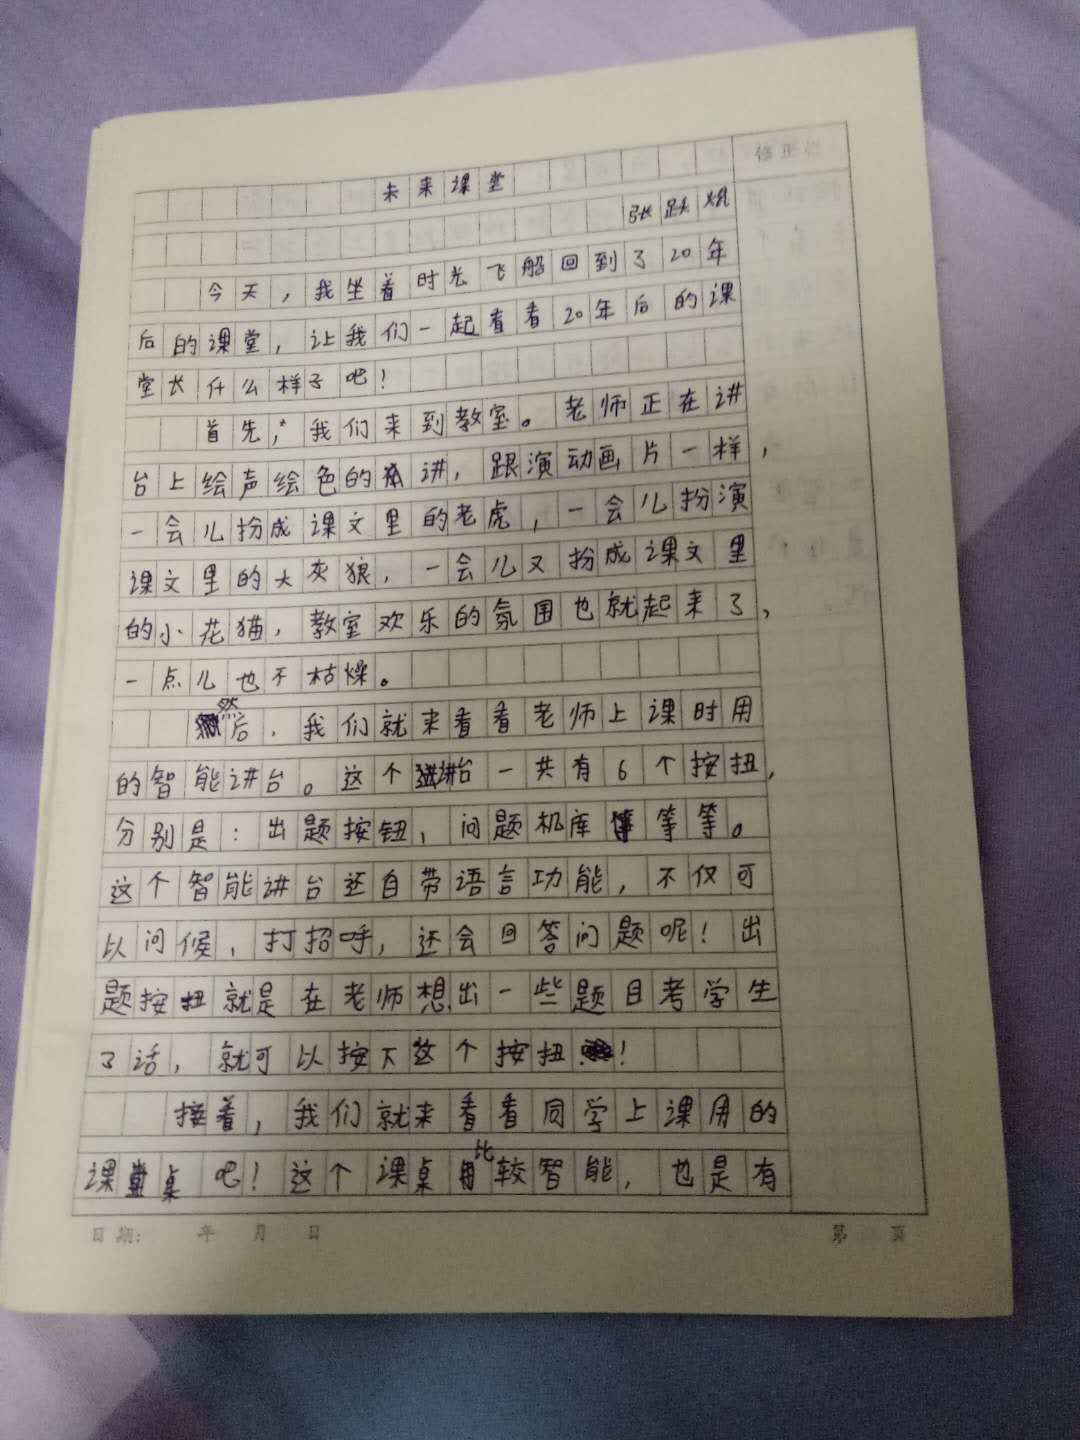 修正栏
未来课堂
张跃
今天，我坐着时光飞船回到了20年
后的课堂，让我们一起看看20年后的课
堂长什么样子吧！
首先，我们来到教室。老师正在讲
台上绘声绘色的讲，跟演动画片一样，
一会儿扮成课文里的老虎，一会儿扮演
课文里的大灰狼，一会儿又扮成课文里
的小花猫，教室欢乐的氛围也就起来了，
一点儿也不枯燥。
然后，我们就来看看老师上课时用
的智能讲台。这个讲台一共有6个按扭，
分别是：出题按钮，问题机库等等。
这个智能讲台还自带语言功能，不仅可
以问候，打招呼，还会回答问题呢！出
题按扭就是在老师想出一些题目考学生
了话，就可以按下这个按扭！
接着，我们就来看看同学上课用的
课桌吧！这个课桌比较智能，也是有
日期： 年 月 日 第 页